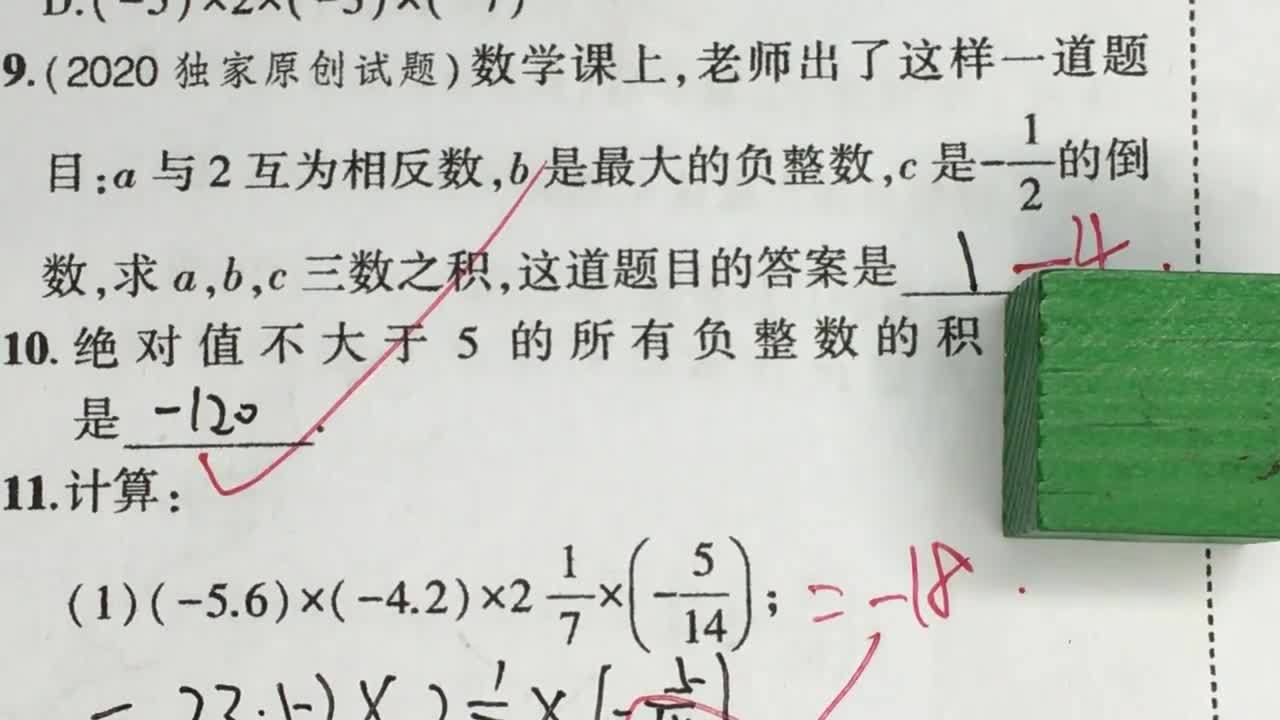 D.(-5)×2×(-3)×(-7)
9.(2020 独家原创试题)数学课上,老师出了这样一道题
目:a 与 2 互为相反数,b 是最大的负整数,c 是-1/2的倒
数,求 a,b,c 三数之积,这道题目的答案是 1 -4
10. 绝对值不大于 5 的所有负整数的积
是 -120 .
11.计算:
(1)(-5.6)×(-4.2)×2 1/7×(-5/14); =-18